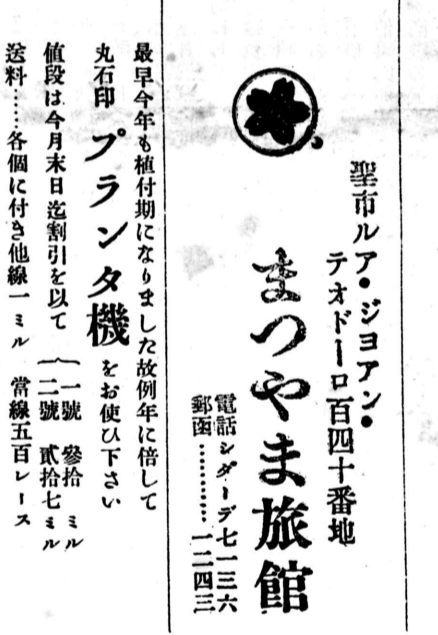 聖市ルア・ジヨアン・
テオドーロ百四十番地
まつやま旅館
電話シダーデ七一三六
郵函…………一二四三
最早今年も植付期になりました故例年に倍して
丸石印 プランタ機をお使ひ下さい
値段は今月末日迄割引を以て{一號 參拾ミル
二號 貳拾七ミル
送料……各個に付き他線一ミル 當線五百レース